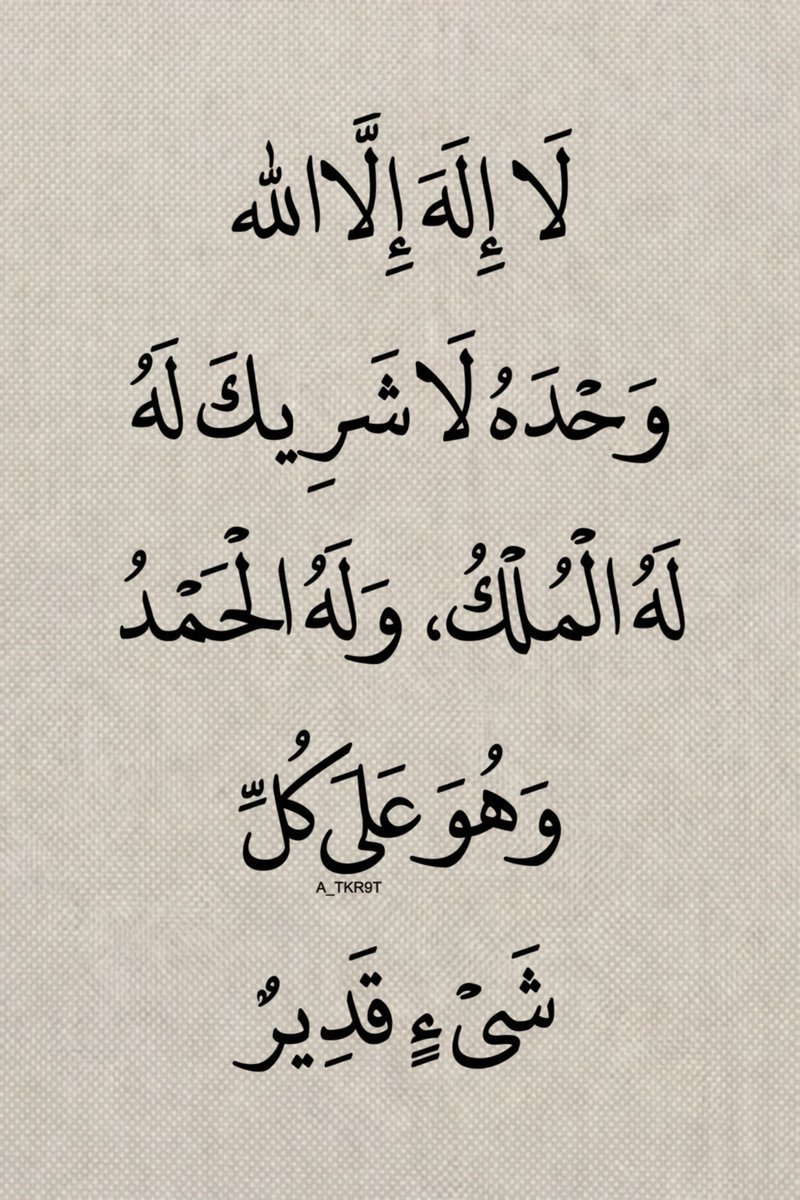 لَا إِلَهَ إِلَّا الله
وَحْدَهُ لَا شَرِيكَ لَهُ
لَهُ الْمُلْكُ، وَلَهُ الْحَمْدُ
وَهُوَ عَلَى كُلِّ
A_TKR9T
شَىْءٍ قَدِيرٌ